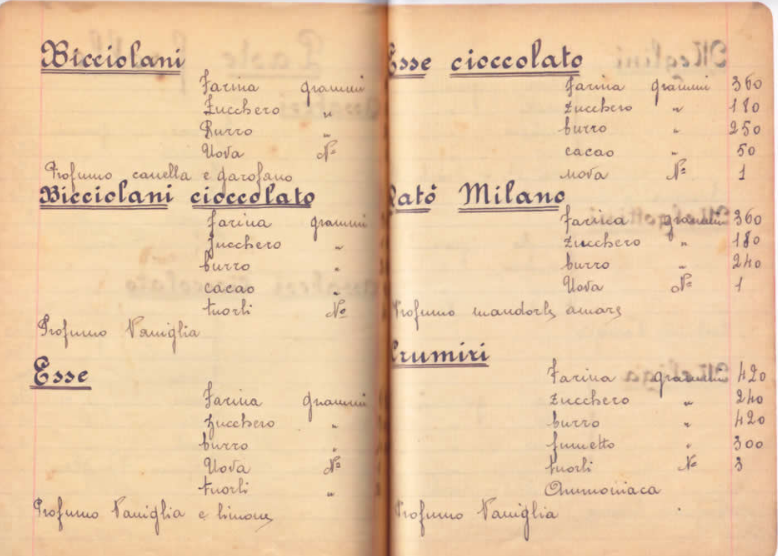 Bicciolani
Farina grammi
Zucchero "
Burro "
Uova N°
Profumo canella e garofano
Bicciolani cioccolato
Farina grammi
Zucchero "
burro "
cacao "
tuorli N°
Profumo Vaniglia
Esse
Farina grammi
Zucchero "
burro "
Uova N°
tuorli "
Profumo Vaniglia e limone
Esse cioccolato
Farina grammi 360
Zucchero " 180
burro " 250
cacao " 50
uova N° 1
Milano
Farina grammi 360
Zucchero " 180
burro " 240
Uova N° 1
Profumo mandorle amare
Krumiri
Farina grammi 420
Zucchero " 240
burro " 420
fumetto " 300
tuorli N° 3
Ammoniaca
Profumo Vaniglia